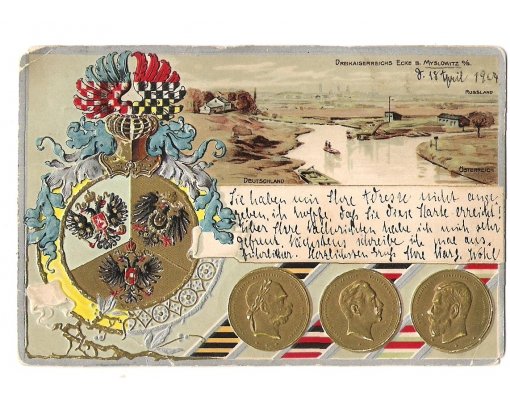 DREIKAISERREICHS ECKE B. MYSLOWITZ O/S.
d. 18 April 1904
RUSSLAND
DEUTSCHLAND
ÖSTERREICH
Sie haben mir Ihre Adresse nicht ange-
geben, ich hoffe, daß Sie diese Karte erreicht!
Über Ihre habe ich mich sehr
gefreut. Nächstens schreibe ich mal aus-
führlicher. Herzlichsten Gruß Ihre